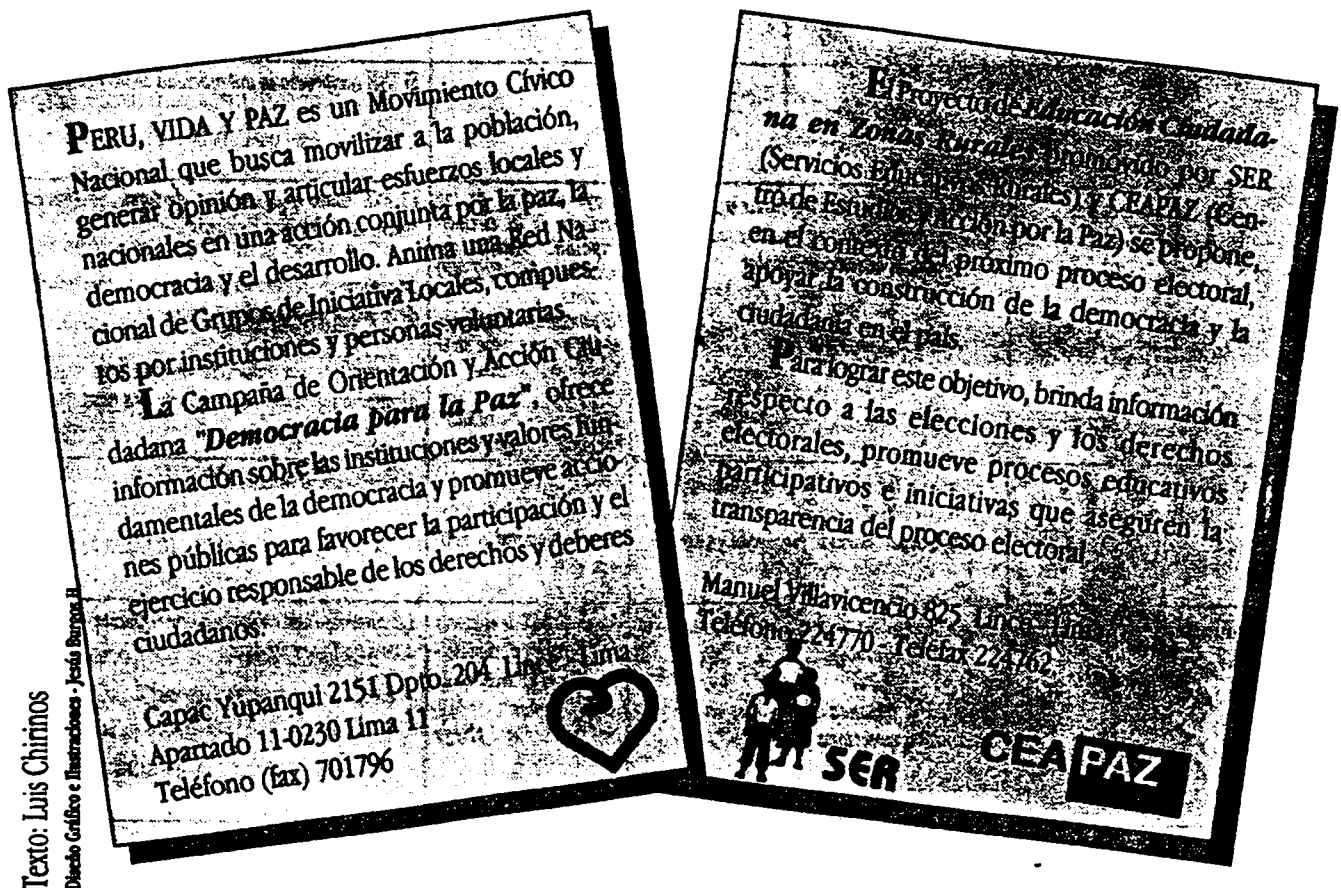 PERU, VIDA Y PAZ es un Movimiento Cívico
Nacional que busca movilizar a la población,
generar opinión y articular esfuerzos locales y
nacionales en una acción conjunta por la paz, la
democracia y el desarrollo. Anima una Red Na-
cional de Grupos de Iniciativa Locales, compues-
tos por instituciones y personas voluntarias.
La Campaña de Orientación y Acción Ciu-
dadana "Democracia para la Paz", ofrece
información sobre las instituciones y valores fun-
damentales de la democracia y promueve accio-
nes públicas para favorecer la participación y el
ejercicio responsable de los derechos y deberes
ciudadanos.
Capac Yupanqui 2151 Dpto. 204 Lince - Lima
Apartado 11-0230 Lima 11
Teléfono (fax) 701796
El Proyecto de Educación Ciudada-
na en Zonas Rurales promovido por SER
(Servicios Educativos Rurales) y CEAPAZ (Cen-
tro de Estudios y Acción por la Paz) se propone,
en el contexto del próximo proceso electoral,
apoyar la construcción de la democracia y la
ciudadanía en el país.
Para lograr este objetivo, brinda información
respecto a las elecciones y los derechos
electorales, promueve procesos educativos
participativos e iniciativas que aseguren la
transparencia del proceso electoral.
Manuel Villavicencio 825, Lince - Lima
Teléfono 224770 - Telefax 224762
SER
CEAPAZ
Texto: Luis Chirinos
Diseño Gráfico e Ilustraciones - Jesús Burgos H.